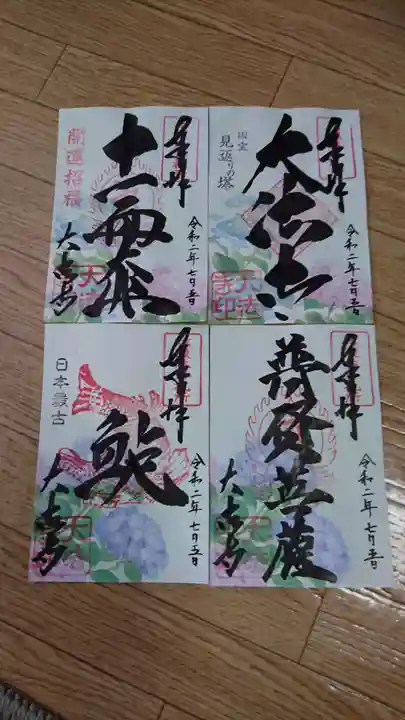 奉拝
大法寺
国宝
見返りの塔
令和二年七月五日
大法
寺印
奉拝
開運招福
大法寺
令和二年七月五日
奉拝
普賢菩薩
大法寺
令和二年七月五日
奉拝
鯱
日本最古
大法寺
令和二年七月五日